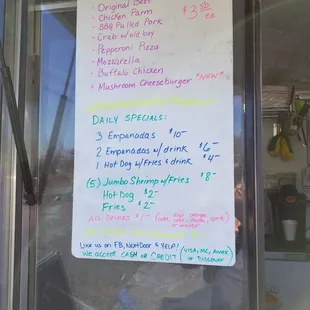 - Original Beef
- Chicken Parm
- BBQ Pulled Pork
- Crab w/old bay
- Pepperoni Pizza
- Mozzarella
- Buffalo Chicken
- Mushroom Cheeseburger *NEW*
$3.50 ea
DAILY SPECIALS:
3 Empanadas $10-
2 Empanadas w/ drink $6-
1 Hot Dog w/Fries & drink $4-
(5) Jumbo Shrimp w/Fries $8-
Hot Dog $2-
Fries $2-
ALL DRINKS $1-
LIKE us on FB, NextDoor & YELP!
WE ACCEPT CASH or CREDIT (VISA, MC, Amex or DISCOVER